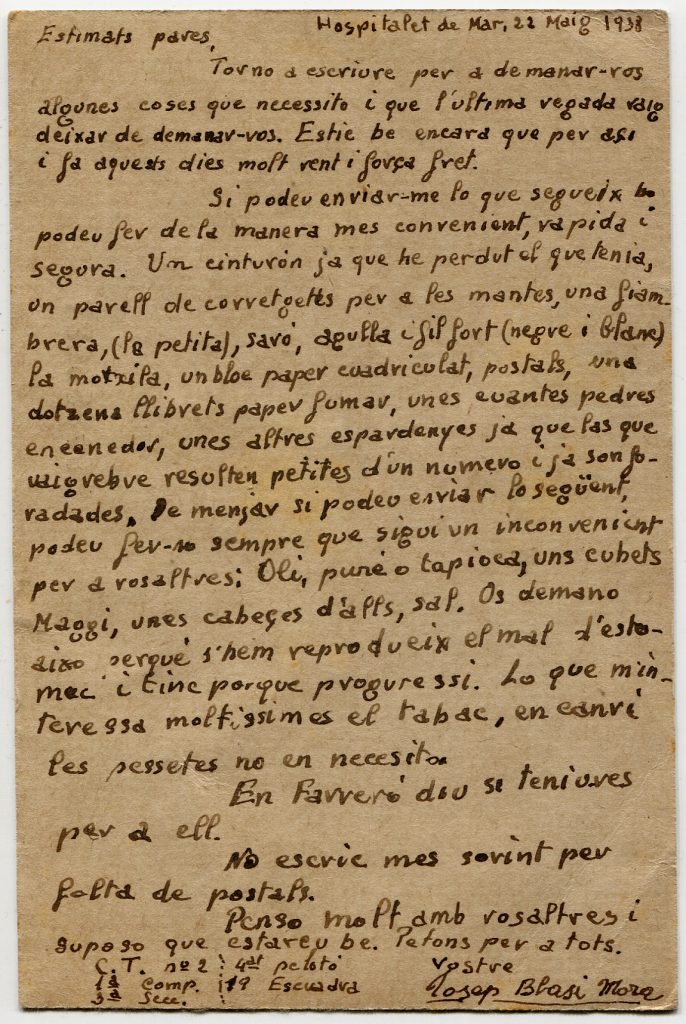 Hospitalet de Mar, 22 Maig 1938
Estimats pares,
Torno a escriure per a demanar-vos
algunes coses que necessito i que l'ultima vegada vaig
deixar de demanar-vos. Estic be encara que per açi
i fa aquests dies molt vent i força fret.
Si podeu enviar-me lo que segueix ho
podeu fer de la manera mes convenient, rapida i
segura. Un cinturón ja que he perdut el que tenia,
un parell de corretgetes per a les mantes, una fiam-
brera, (la petita), savó, agulla i fil fort (negre i blanc)
la motxila, un bloc paper cuadriculat, postals, una
dotzena llibrets paper fumar, unes cuantes pedres
encenedor, unes altres espardenyes ja que las que
vaig rebre resulten petites d'un numero i ja son fo-
radades. De menjar si podeu enviar lo següent,
podeu fer-ho sempre que sigui un inconvenient
per a vosaltres: Oli, puré o tapioca, uns cubets
Maggi, unes cabeçes d'alls, sal. Os demano
aixo perqué s'hem reprodueix el mal d'esto-
mac i tinc por que progressi. Lo que m'in-
teressa moltissimes el tabac, en canvi
les pessetes no en necesito.
En Farreró diu si teniu res
per a ell.
No escric mes sovint per
falta de postals.
Penso molt amb vosaltres i
suposo que estareu be. Petons per a tots.
C. T. nº 2 4at pelotó Vostre
1ª Comp. 19 Escuadra Josep Blasi Mora
3ª Secc.